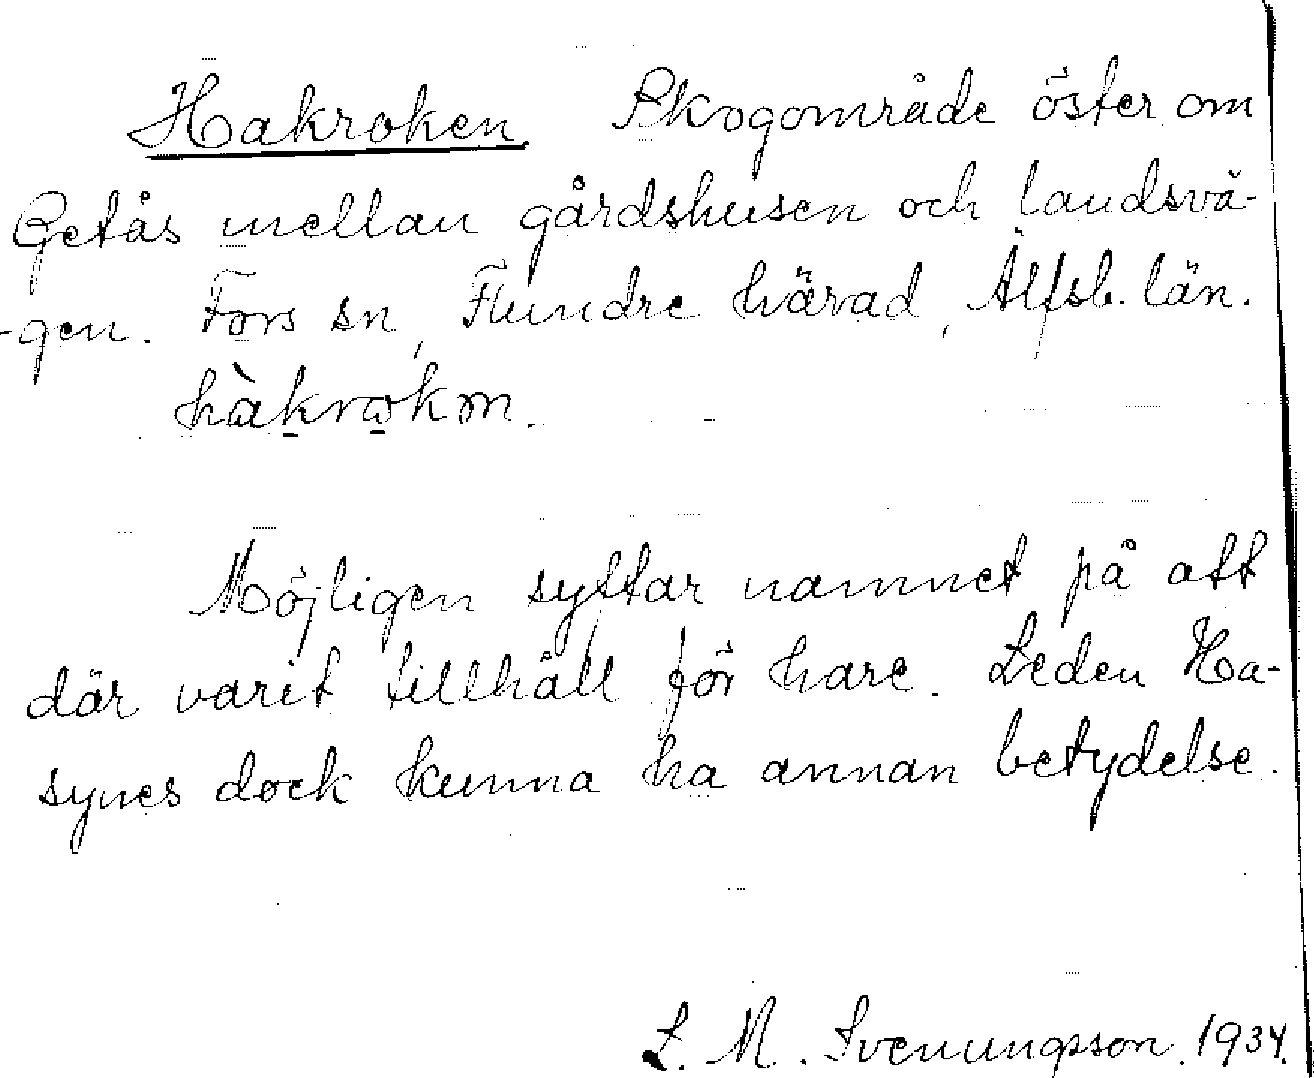 Hakroken. Skogområde öster om
Getås mellan gårdshusen och landsvä-
-gen. Fors sn, Flundre härad, Älfsb. län.
hàkrokm.
Möjligen syftar namnet på att
där varit tillhåll för hare. Leden Ha-
synes dock kunna ha annan betydelse.
L. M. Svenungsson. 1934.